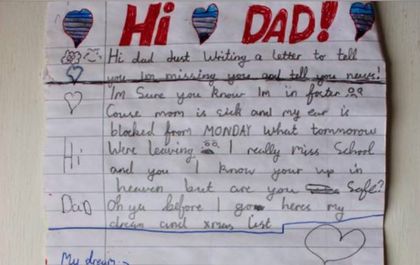 Hi DAD!
Hi dad Just Writing a letter to tell
you Im missing you and tell you news!
Im Sure you know Im in foster
Couse mom is sick and my ear is
blocked from MONDAY What tommorow
Were leaving I really miss School
Hi
and you I know your up in
heaven but are you Safe?
Dad
Oh ya before I go heres my
dream and xmas list
My dream :-